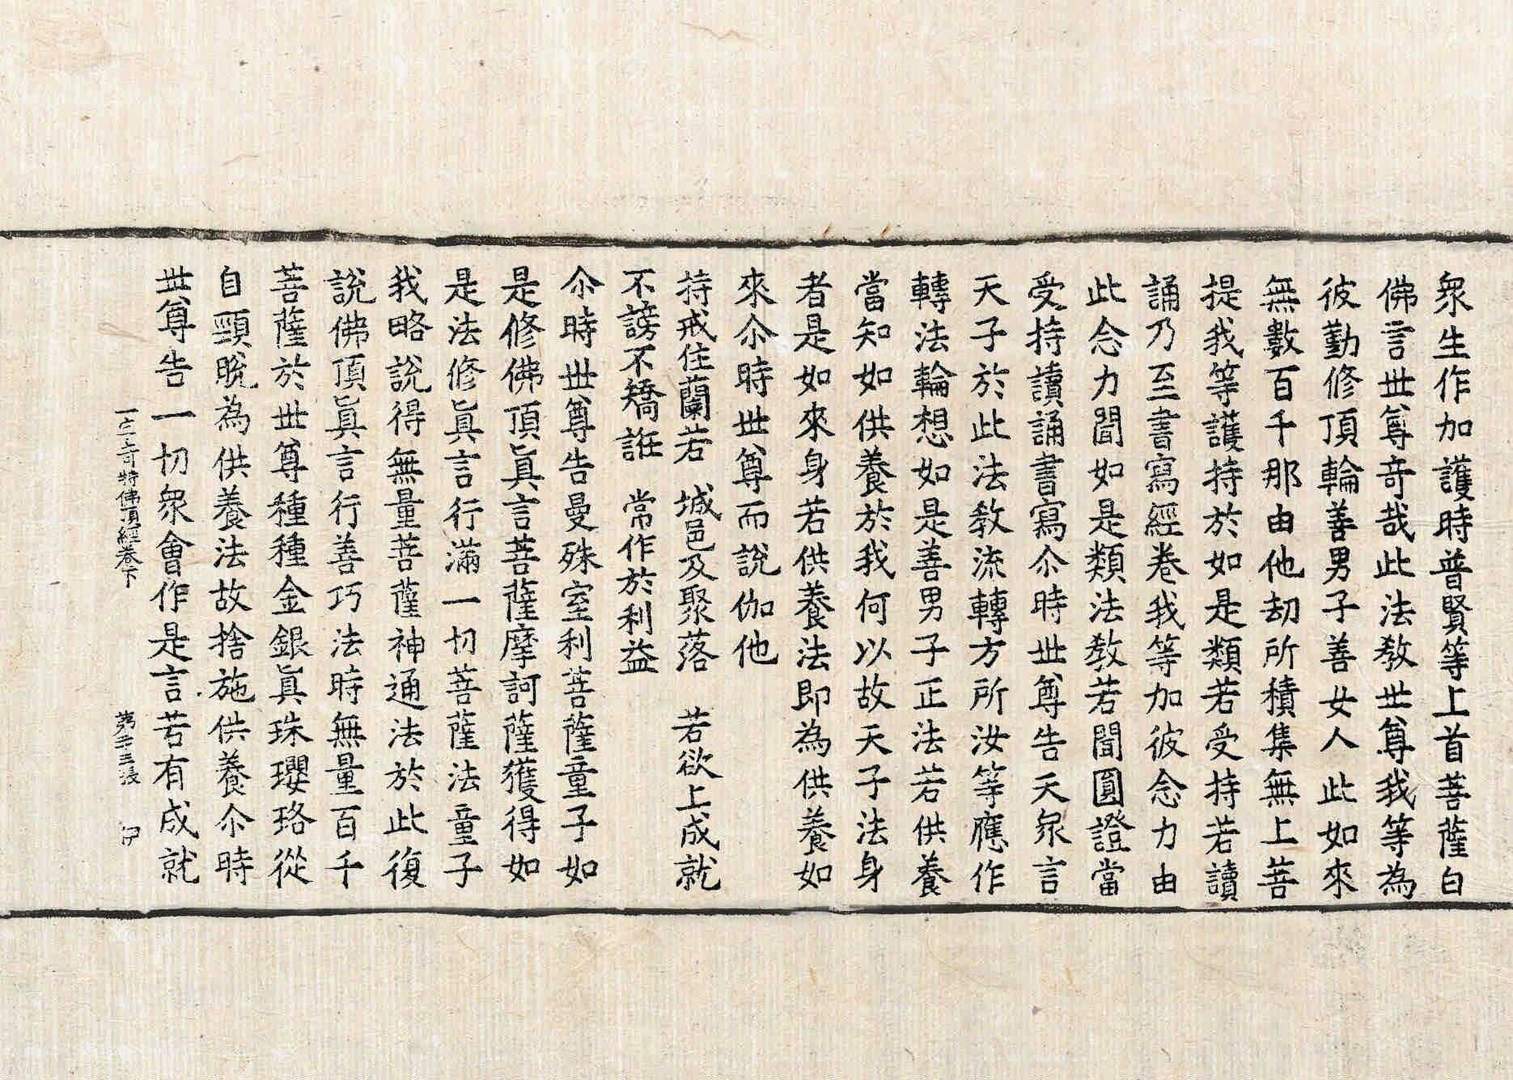 衆生作加護時普賢等上首菩薩白
佛言世尊奇哉此法教世尊我等為
彼勤修頂輪善男子善女人此如來
無數百千那由他劫所積集無上菩
提我等護持於如是類若受持若讀
誦乃至書寫經卷我等加彼念力由
此念力聞如是類法教若聞圓證當
受持讀誦書寫尒時世尊告天衆言
天子於此法教流轉方所汝等應作
轉法輪想如是善男子正法若供養
當知如供養於我何以故天子法身
者是如來身若供養法即為供養如
來尒時世尊而說伽他
持戒住蘭若　城邑及聚落　若欲上成就
不謗不矯誑　常作於利益
尒時世尊告曼殊室利菩薩童子如
是修佛頂眞言菩薩摩訶薩獲得如
是法修眞言行滿一切菩薩法童子
我略說得無量菩薩神通法於此復
說佛頂眞言行善巧法時無量百千
菩薩於世尊種種金銀眞珠瓔珞從
自頸脫為供養法故捨施供養尒時
世尊告一切衆會作是言若有成就
一字奇特佛頂經卷下　第三十三張　伊